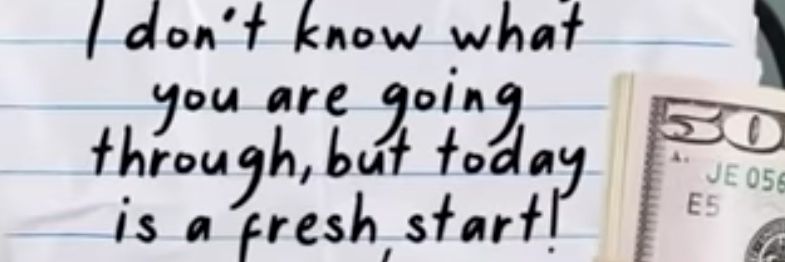 I don't know what
you are going
through, but today
is a fresh start!
50
A.
JE 056
E5